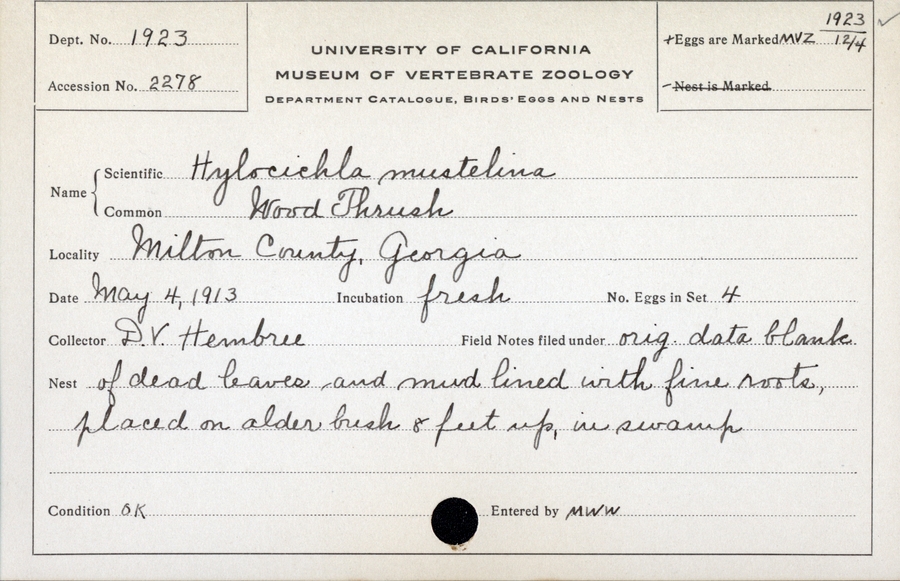 Dept. No. 1923
Accession No. 2278
UNIVERSITY OF CALIFORNIA
MUSEUM OF VERTEBRATE ZOOLOGY
DEPARTMENT CATALOGUE, BIRDS' EGGS AND NESTS
1923 ✓
+Eggs are Marked MVZ 12/4
-Nest is Marked
Name { Scientific Hylocichla mustelina
Common Wood Thrush
Locality Milton County, Georgia
Date May 4, 1913 Incubation fresh No. Eggs in Set 4
Collector D.V. Hembree Field Notes filed under orig. data blank
Nest of dead leaves and mud lined with fine roots,
placed on alder bush 8 feet up, in swamp
Condition OK Entered by MWW